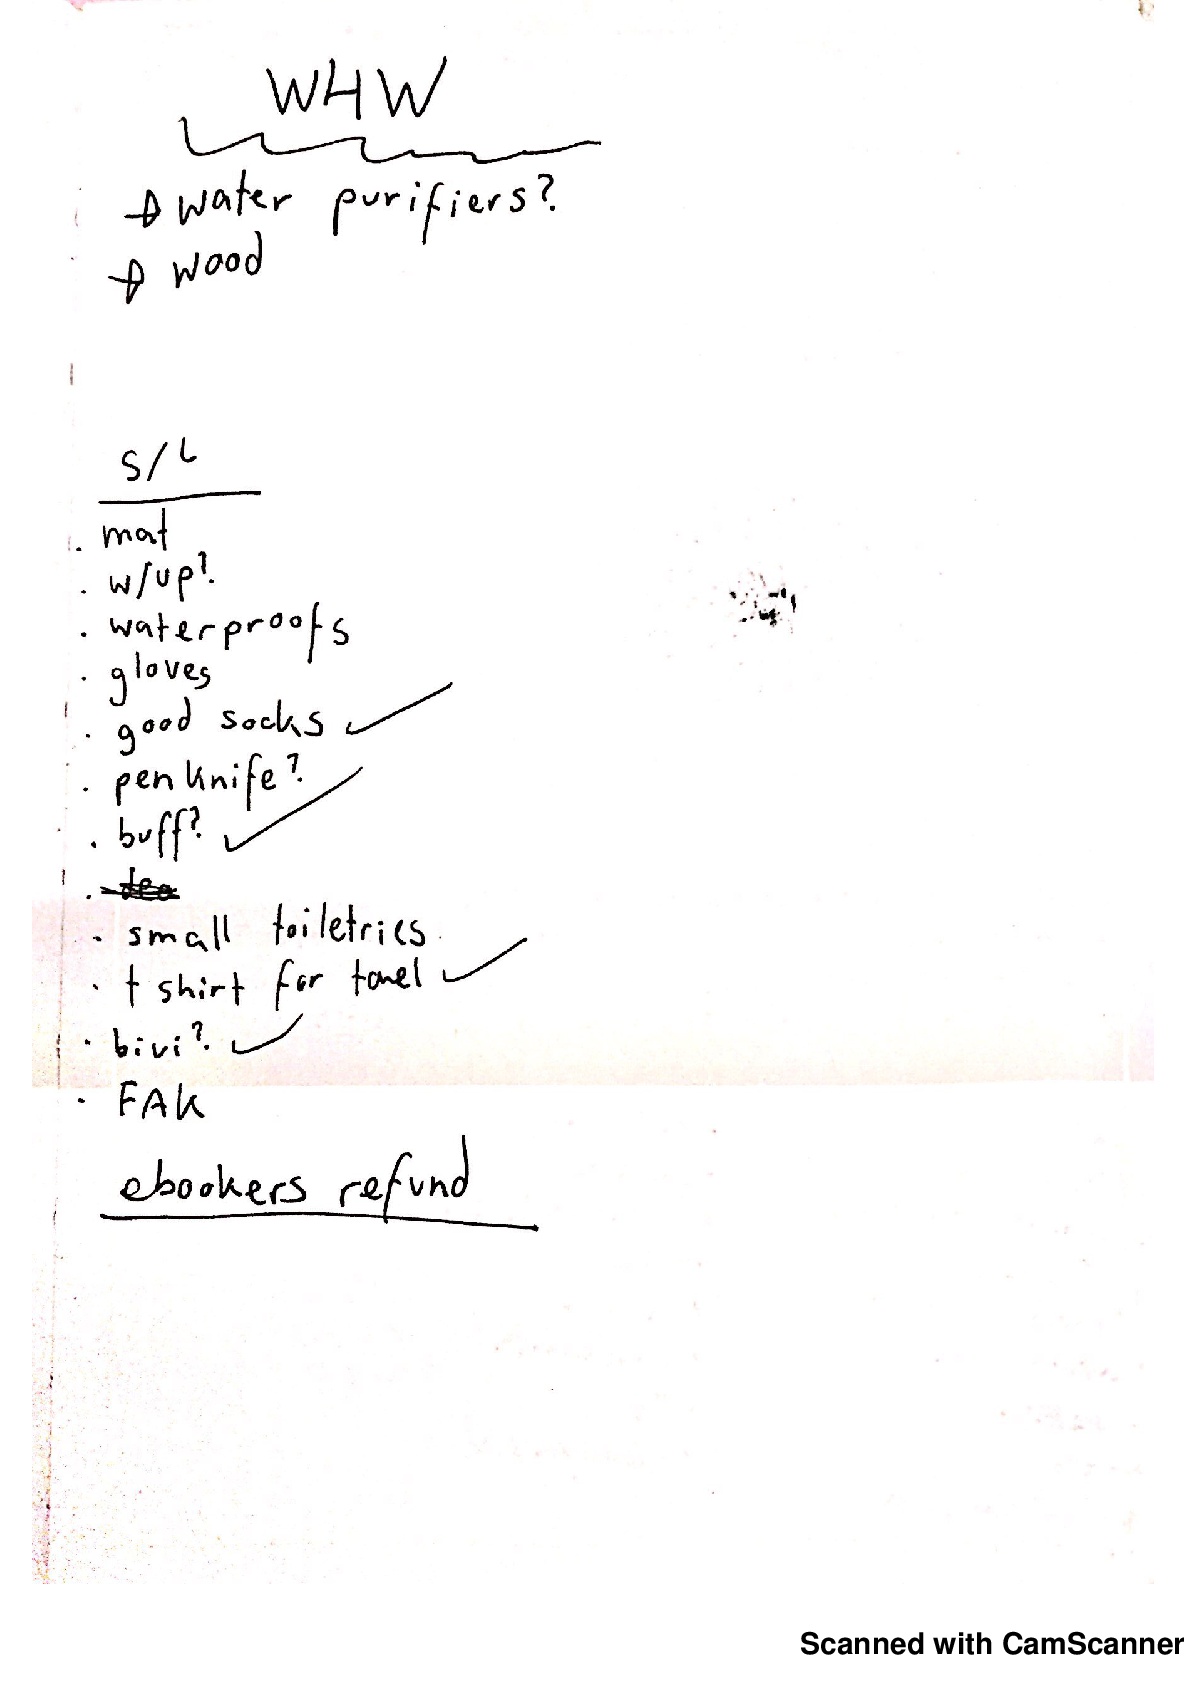 WHW
→ water purifiers?
→ wood
S/L
. mat
. w/up?
. waterproofs
. gloves
. good socks ✓
. penknife?
. buff? ✓
.
. small toiletries
. t shirt for towel ✓
. bivi? ✓
. FAK
ebookers refund
Scanned with CamScanner